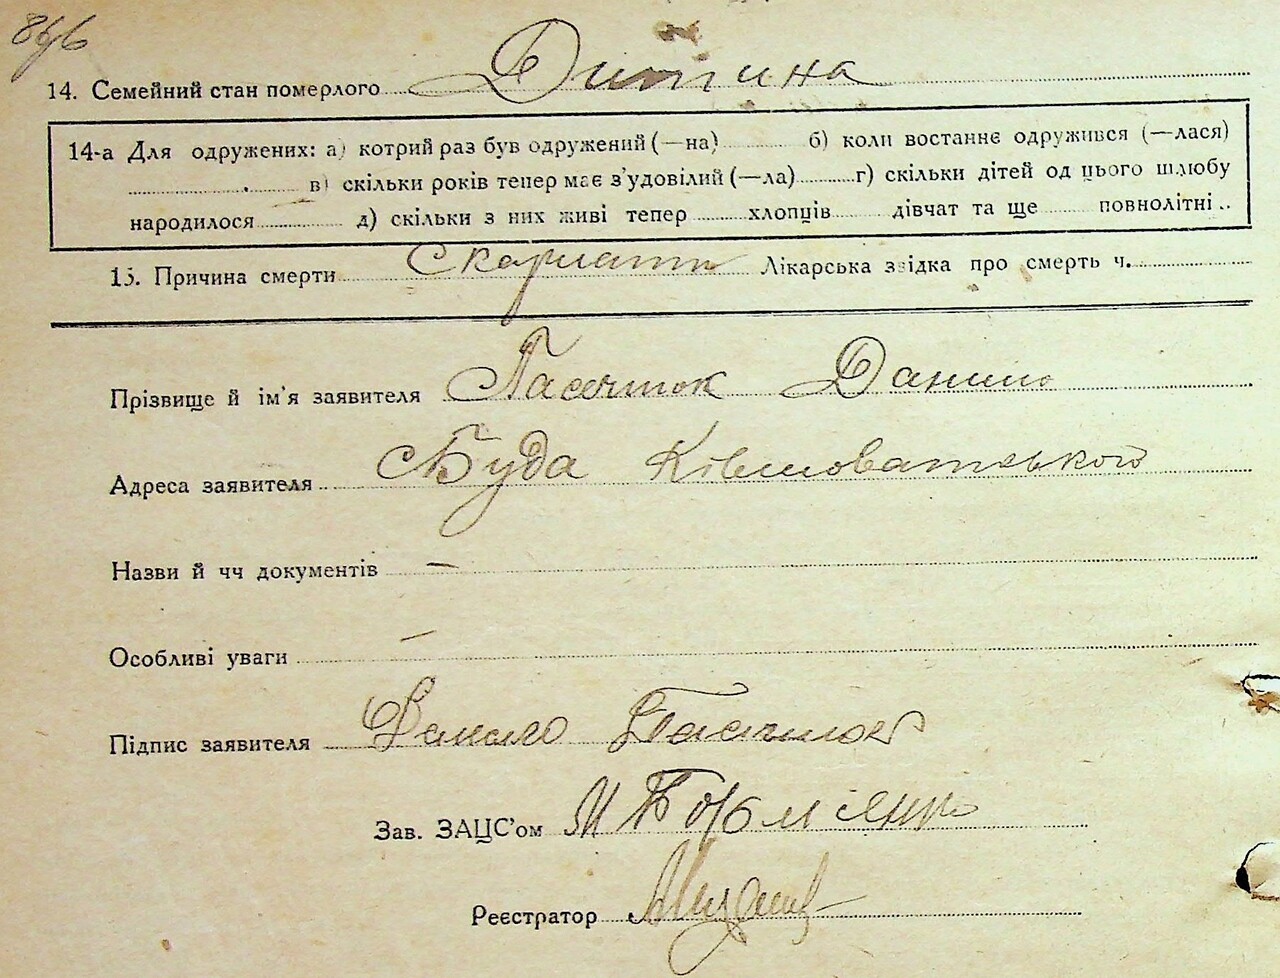 14. Семейний стан померлого Дитина
14-а Для одружених: а) котрий раз був одружений (—на) б) коли востаннє одружився (—лася)
в) скільки років тепер має з'удовілий (—ла) г) скільки дітей од цього шлюбу
народилося д) скільки з них живі тепер хлопців дівчат та ще повнолітні
15. Причина смерти Скарлати Лікарська звідка про смерть ч.
Прізвище й ім'я заявителя Пасечнюк Данило
Адреса заявителя Буда
Назви й чч документів —
Особливі уваги —
Підпис заявителя Данило
Зав. ЗАЦС'ом
Реєстратор